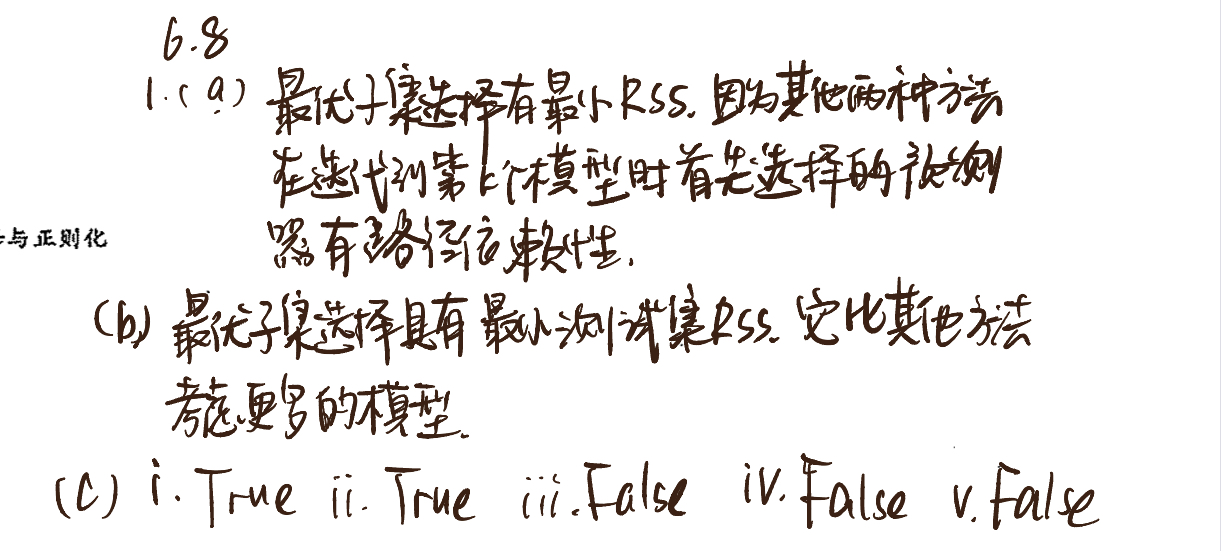 6.8
1.(a) 最优子集选择有最小RSS. 因为其他两种方法
在迭代到第k个模型时首先选择的预测
器有路径依赖性.
与正则化
(b) 最优子集选择具有最小测试集RSS. 它比其他方法
考虑更多的模型.
(c) i. True ii. True iii. False iv. False v. False